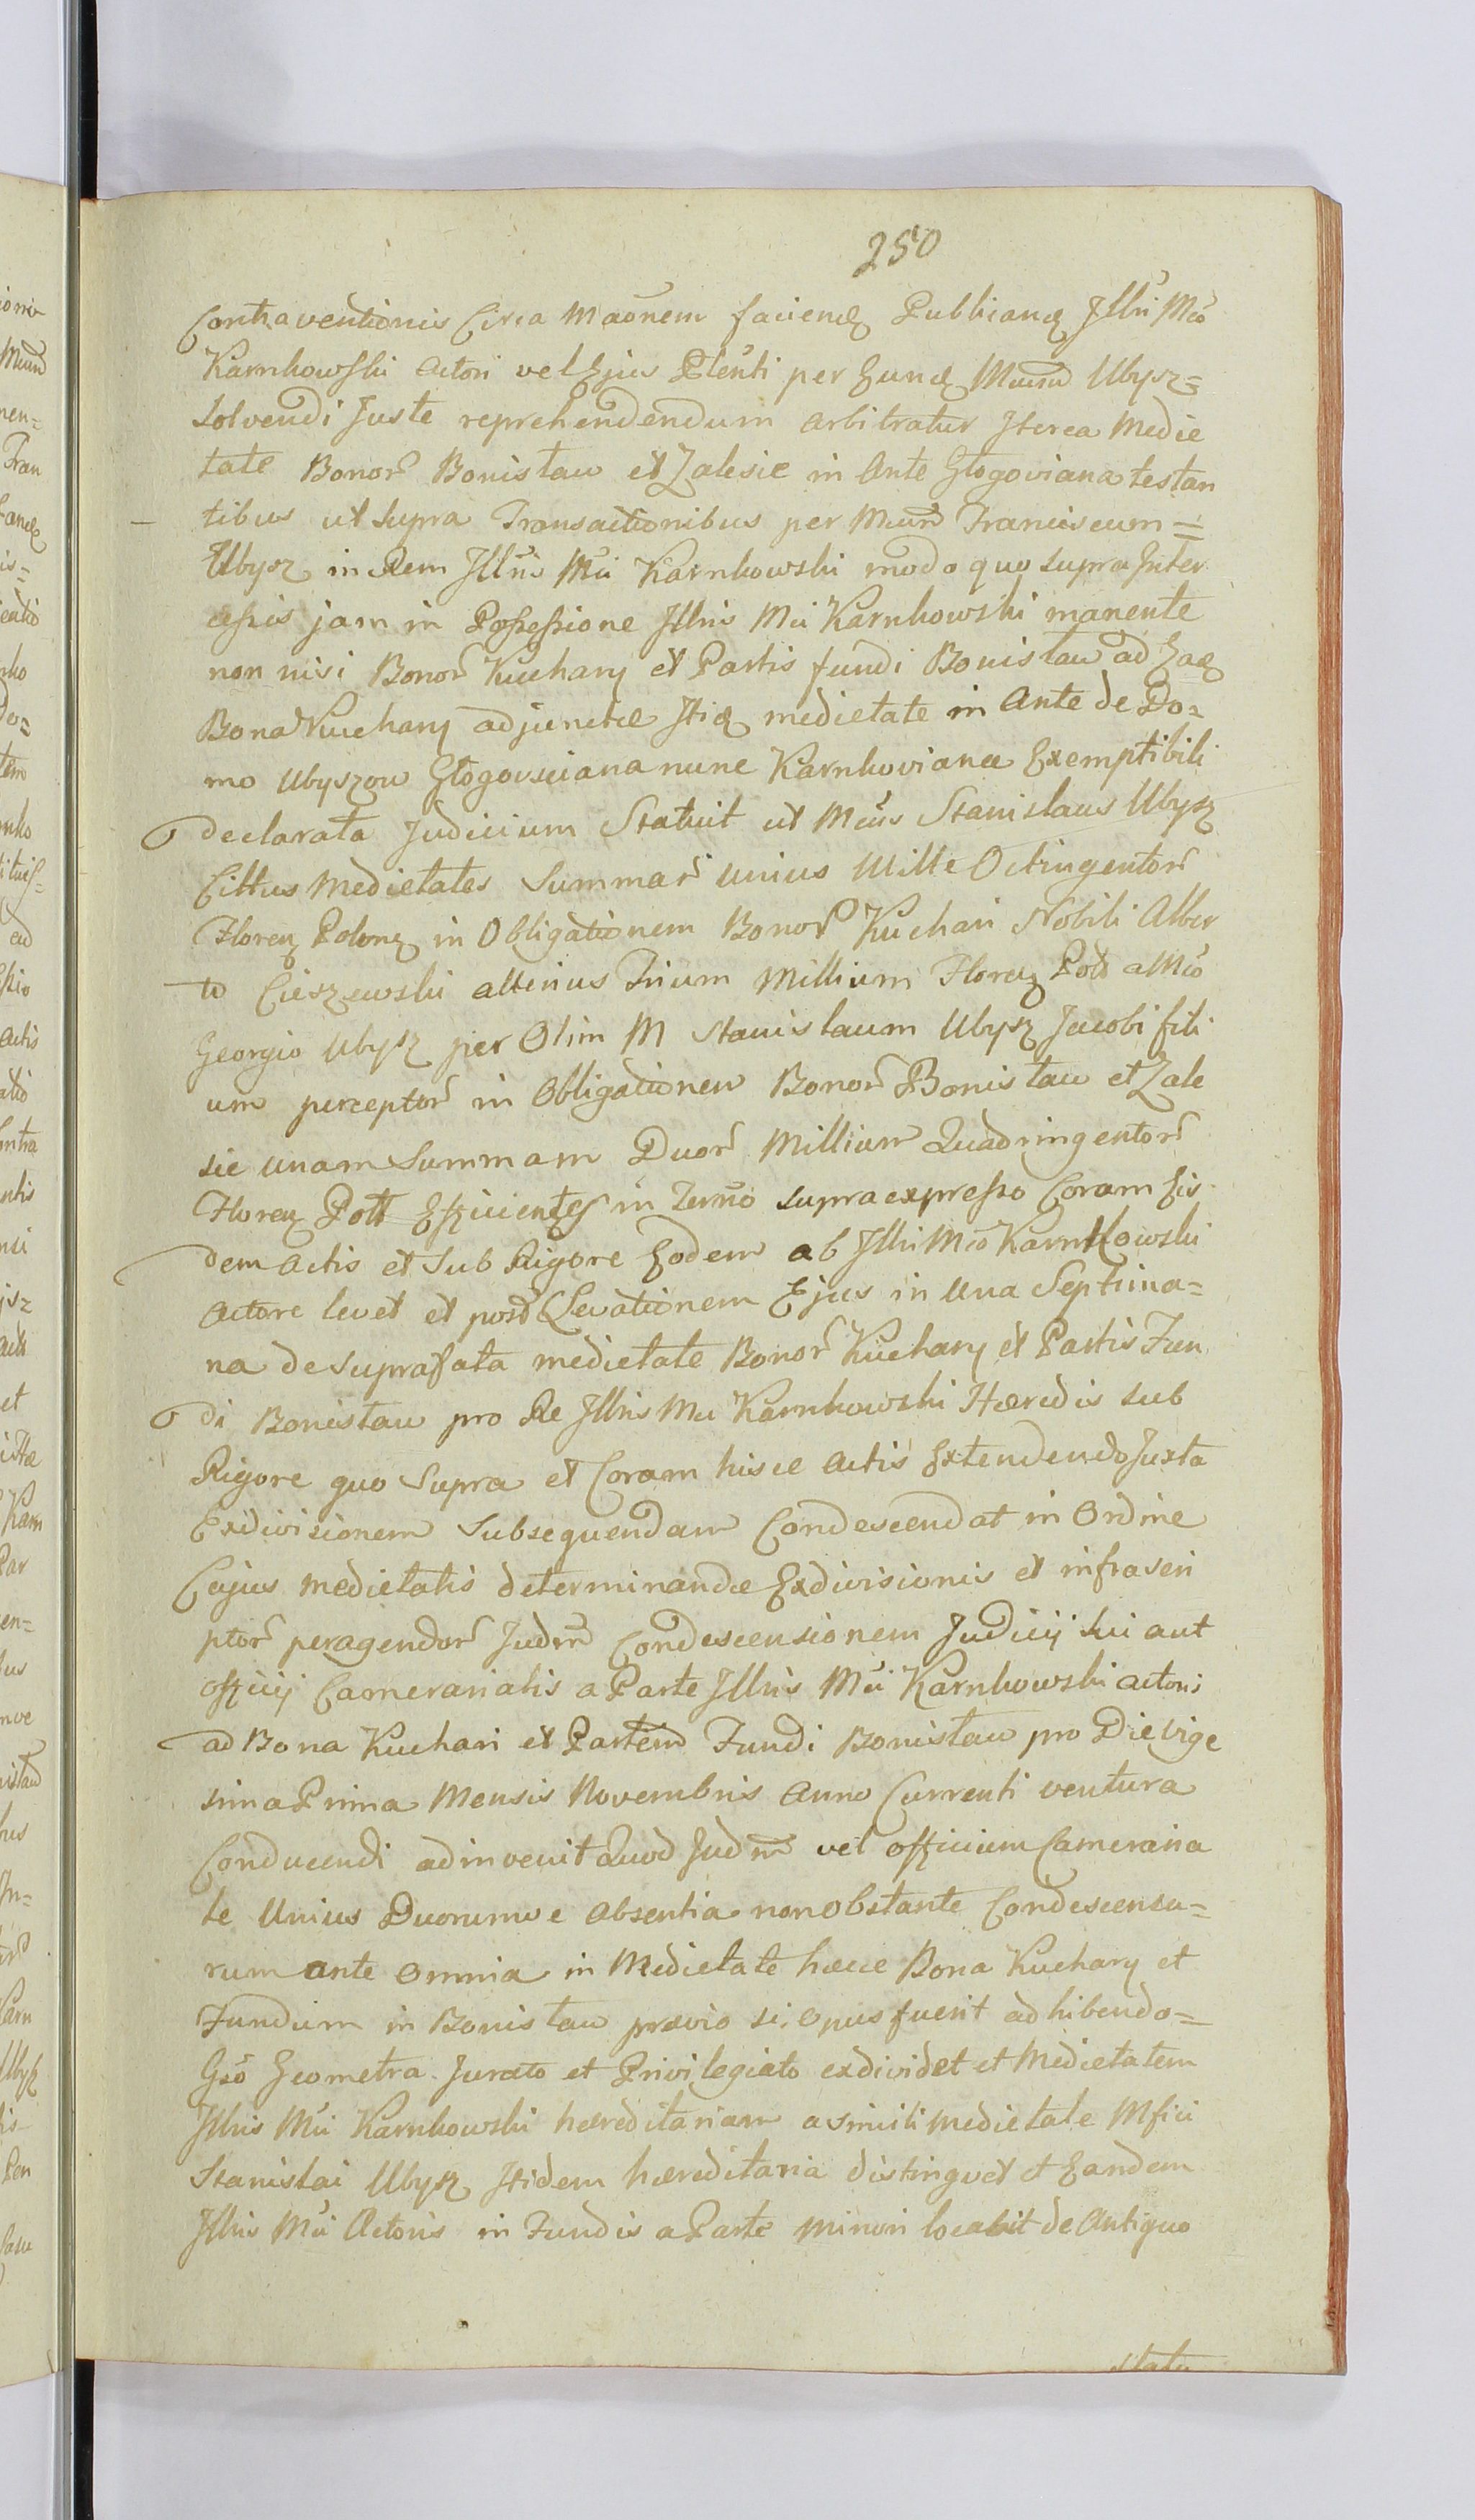 250
Contraventionis Circa Mãonem faciend Publicand Jllñi Mco
Karnkowski Actori vel Ejus Pleñti per Eund Mcum Ubysz=
Solvendi Juste reprehendendum arbitratur Jterea Medie
tate Bonor Bonisław et Zalesie in Ante Głogoviana testan
tibus ut supra Transactionibus per Mcum Franciscum=
Ubysz in Rem Jllñis Mci Karnkowski modo quo supra Inter
cessis jam in Possessione Jllris Mci Karnkowski manente
non nisi Bonor Kuchary et Partis fundi Bonisław ad Ead
Bona Kuchary adjunctae Jtid medietate in Ante de Do=
mo Ubyszow Głogowsciana nunc Karnkoviana Exemptibili
declarata Judicium Statuit ut Mcus Stanislaus Ubysz
Cittus Medietates Summar unius Mille Octingentor
Floren Polon in Obligationem Bonor Kuchari Nobili Alber
to Cieszewski alterius Trium Millium Floren Poll a Mco
Georgio Ubysz per Olim M Stanislaum Ubysz Jacobi fili
um perceptor in Obligationem Bonor Bonisław et Zale
sie unam Summam Duor Millium Quadringentor
Floren Poll Efficientes in Termo supraexpresso Coram Eis
dem Actis et sub Rigore Eodem ab Jllri Mco Karnkowski
Actore levet et post Levationem Ejus in una Septima=
na de suprafata medietate Bonor Kuchary et Partis Fun
di Bonisław pro Re Jllris Mci Karnkowski Haeredis sub
Rigore quo Supra et Coram hisce Actis Extendendo Juxta
Exdivisionem Subsequendam Condescendat in Ordine
Cujus medietatis determinandae Exdivisionis et infrascri
ptor peragendor Judm Condescensionem Judicij sui aut
officij Camerarialis a Parte Jllris Mci Karnkowski Actoris
ad Bona Kuchari et Partem Fundi Bonisław pro Die Vige
sima Prima Mensis Novembris Anno Currenti ventura
Conducendi adinvenit Quod Judm vel officium Cameraria
le Unius Duorumve absentia non obstante Condescensu=
rum ante omnia in Medietate haecce Bona Kuchary et
Fundum in Bonisław praevio si opus fuerit adhibendo=
Gso Geometra Jurato et Privilegiato exdividet et Medietatem
Jllris Mci Karnkowski haereditariam a simili medietate Mfici
Stanislai Ubysz Jtidem haereditaria distinguet et Eandem
Jllris Mci Actoris in Fundis a Parte minori locabit de Antiquo
statu